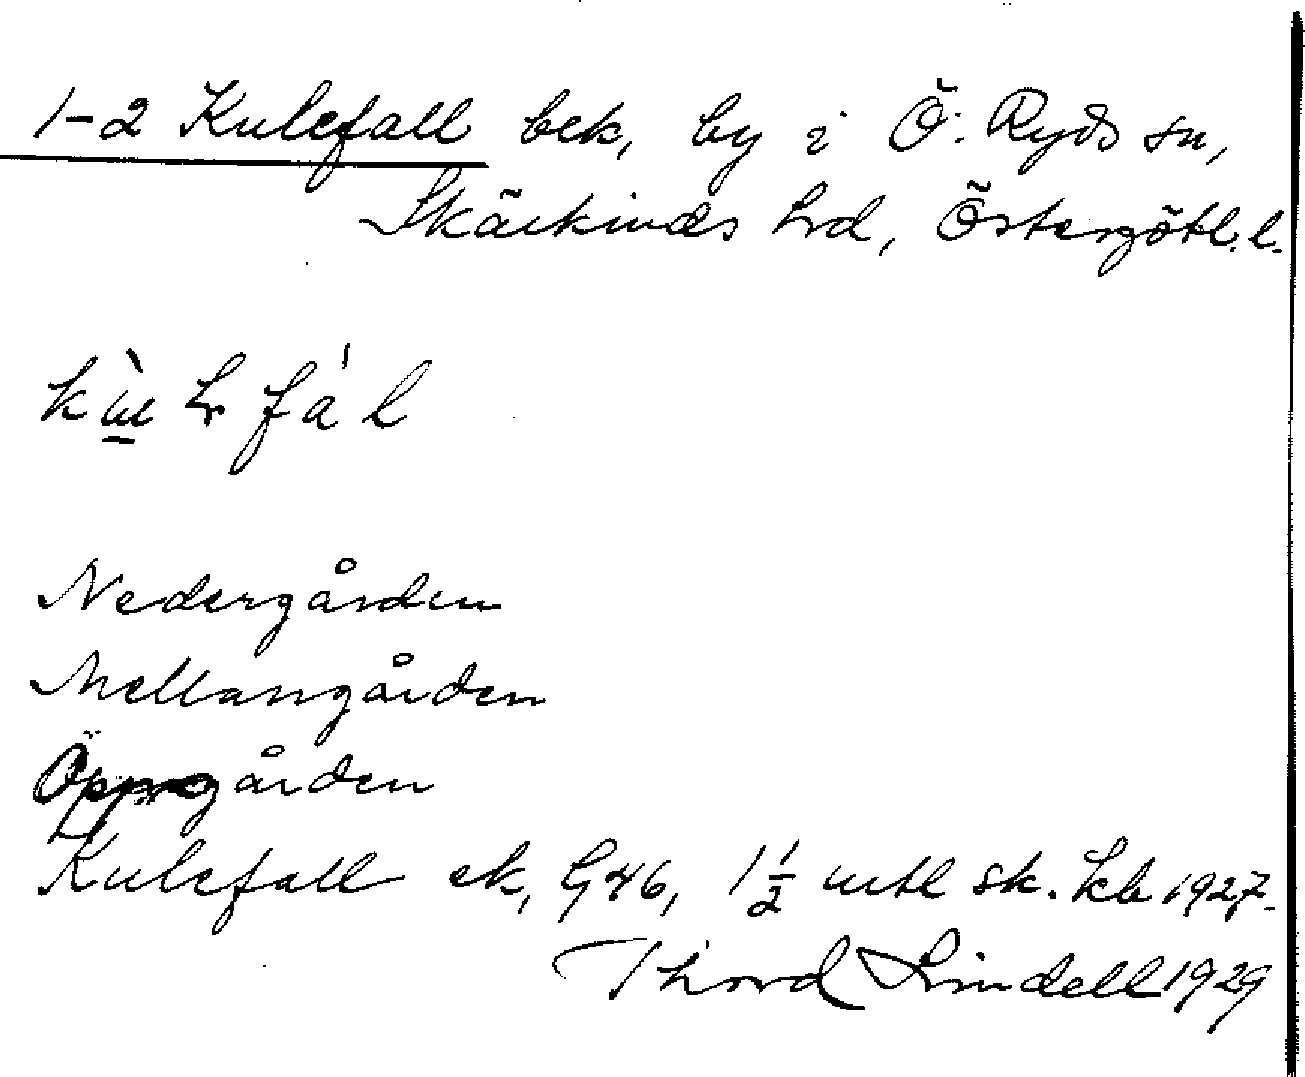 1-2 Kulefall bek, by i Ö. Ryds sn,
Skärkinds hrd, Östergötl. l.
Nedergården
Mellangården
Öppegården
Kulefall ek, G46, 1 1/2 mtl sk. kb 1927.
Thord Lindell 1929